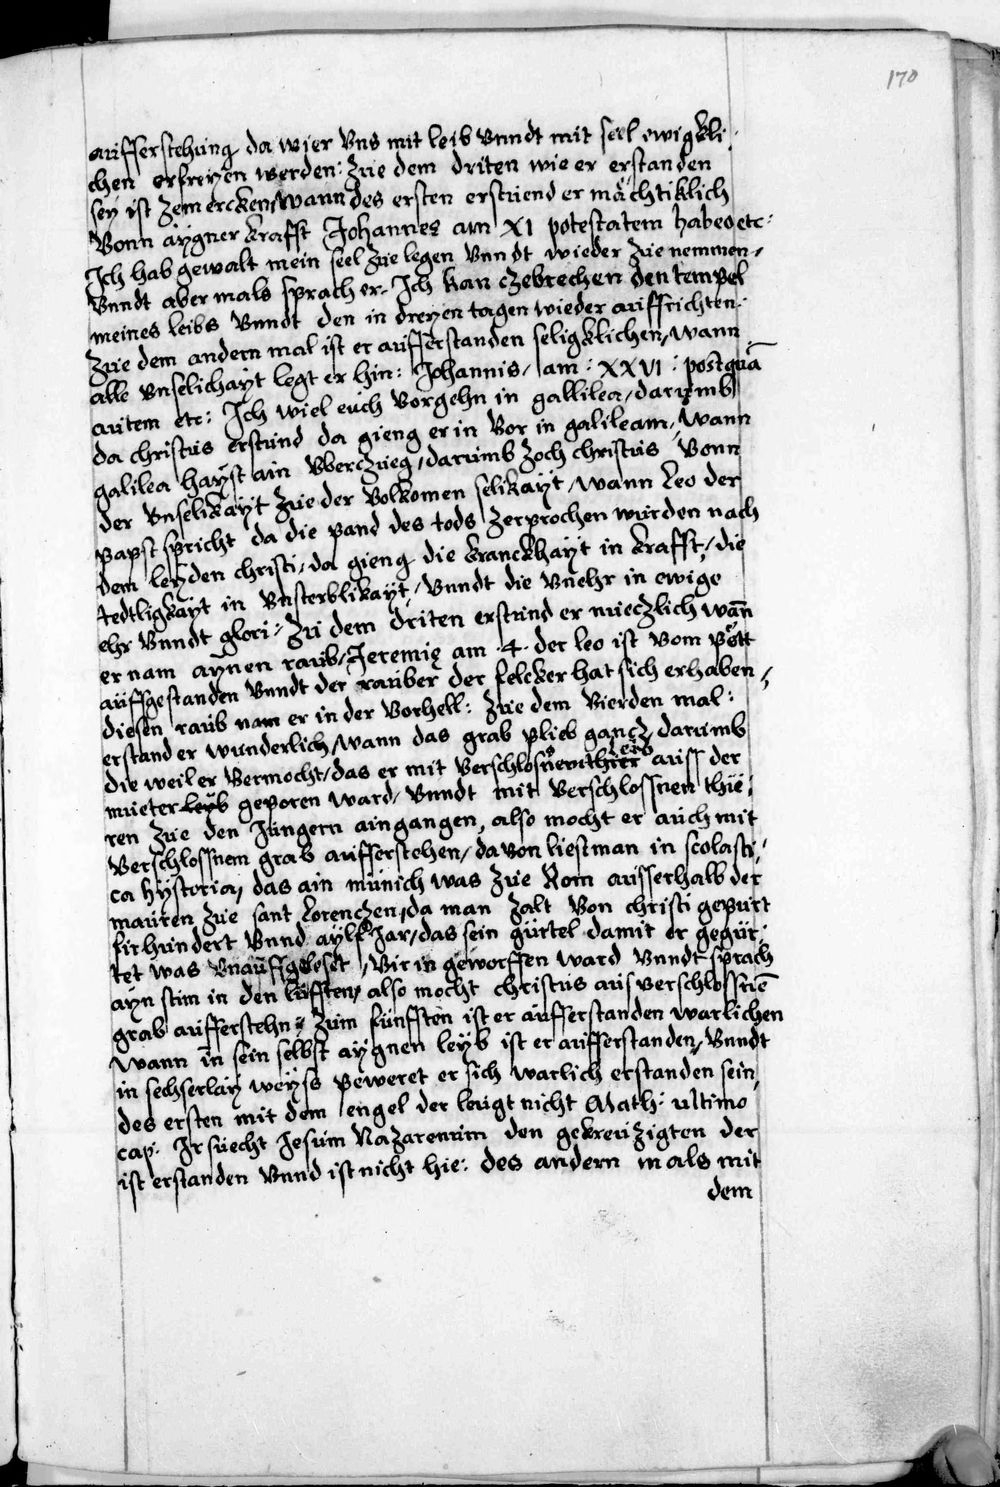 170
aufferstehung da wier Vns mit leib Vnndt mit seel ewigkli-
chen erfreyen werden: Zue dem driten wie er erstanden
sey ist Zemercken, wann des ersten erstuend er mächtiklich
Vonn aygner krafft Johannes am XI potestatem habeo etc:
Ich hab gewalt mein seel Zue legen Vnndt wieder Zue nemmen,
Vnndt aber mals sprach er. Ich kan czebrechen den tempel
meines leibs Vnndt den in dreyen tagen wieder auffrichten.
Zue dem andern mal ist er aufferstanden seligklichen, wann
alle Vnselichayt legt er hin: Johannis, am: XXVI: postquā
autem etc: Ich wiel euch Vorgehn in gallilea, darumb
da christus erstund da gieng er in Vor in galileam, Wann
galilea hayst ain Vberczueg, darumb Zoch christus Vonn
der Vnselikayt Zue der Volkomen selikayt, wann Leo der
papst spricht da die pand des tods Zerprochen wurden nach
dem leyden christi, da gieng die kranckhayt in krafft, die
tedtligkayt in Vnsterblikayt, Vnndt die Vnehr in ewige
ehr Vnndt glori: Zu dem driten erstund er nuczlich wan̄
er nam aynen raub, Jeremię am .4. der leo ist Vom pett
auffgestanden Vnndt der rauber der felcker hat sich erhaben,
diesen raub nam er in der Vorhell: Zue dem Vierden mal:
erstand er wunderlich, wann das grab plieb gancz darumb
die weil er Vermocht, das er mit Verschlosner auss der
mueter leyb geporen ward, Vnndt mit Verschlossnen thue-
ren Zue den Jungern aingangen, also mocht er auch mit
Verschlossnem grab aufferstehen, davon liest man in scolasti-
ca hystoria, das ain münich was Zue Rom ausserhalb der
mauren Zue sant Lorenczen, da man Zalt Von christi gepurt
fir hundert Vnnd aylf Jar, das sein gürtel damit er gegür-
tet was Vnauffgelöset, Vir in geworffen ward Vnndt sprach
ayn stim in den lüfften, also mocht christus aus verschlossnē
grab aufferstehn: Zum fünfften ist er aufferstanden warlichen
wann in sein selbst aygnen leyb ist er aufferstanden, Vnndt
in sechserlay weyss peweret er sich warlich erstanden sein,
des ersten mit dem engel der leugt nicht Math: ultimo
cap: Ir suecht Jesum Nazarenum den gekreuzigten der
ist erstanden Vnnd ist nicht hie: des andern mals mit
dem